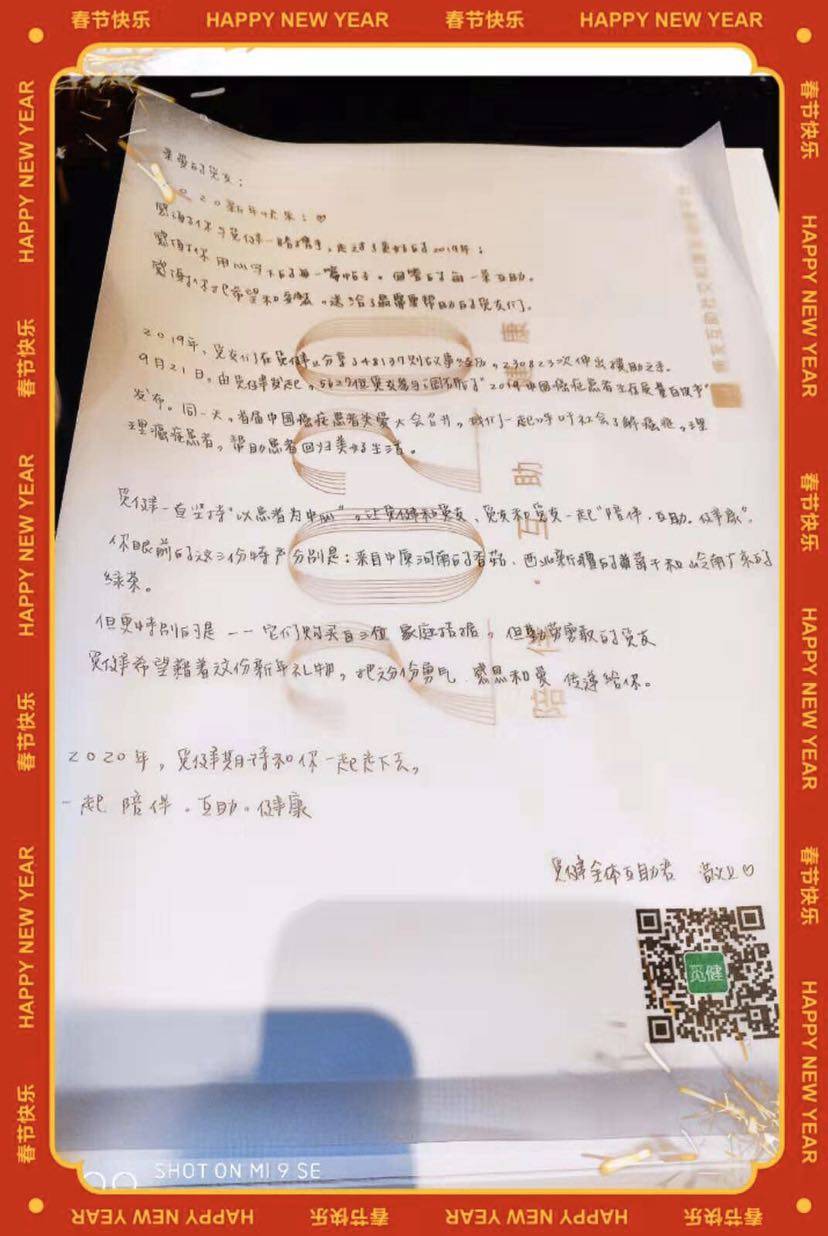 春节快乐 HAPPY NEW YEAR 春节快乐 HAPPY NEW YEAR
亲爱的觅友：
2020新年快乐！♡
感谢你与觅健一路携手，走过了更好的2019年；
感谢你用心写下的每一篇帖子。回答的每一条互助。
感谢你把希望和爱，送给了最需要帮助的觅友们。
2019年，觅友们在觅健分享了48137则故事经历，230823次伸出援助之手。
9月21日，由觅健发起，5627位觅友参与调研的"2019中国癌症患者生存质量白皮书"
发布。同一天，首届中国癌症患者关爱大会召开，我们一起呼吁社会了解癌症，理
理癌症患者，帮助患者回归美好生活。
觅健一直坚持"以患者为中心"，让觅健和觅友、觅友和觅友一起"陪伴.互助.健康"。
你眼前的这三份特产分别是：来自中原河南的香菇、西北新疆的葡萄干和岭南广东的
绿茶。
但更特别的是——它们购买自三位家庭拮据，但勤劳勇敢的觅友
觅健希望藉着这份新年礼物，把这份勇气 感恩和爱 传递给你。
2020年，觅健期待和你一起走下去，
一起 陪伴.互助.健康
觅健全体互助者 敬上♡
觅健
陪伴·互助·健康
SHOT ON MI 9 SE
HAPPY NEW YEAR 春节快乐 HAPPY NEW YEAR 春节快乐 HAPPY NEW YEAR 春节快乐
春节快乐 HAPPY NEW YEAR 春节快乐 HAPPY NEW YEAR 春节快乐 HAPPY NEW YEAR
HAPPY NEW YEAR 春节快乐 HAPPY NEW YEAR 春节快乐